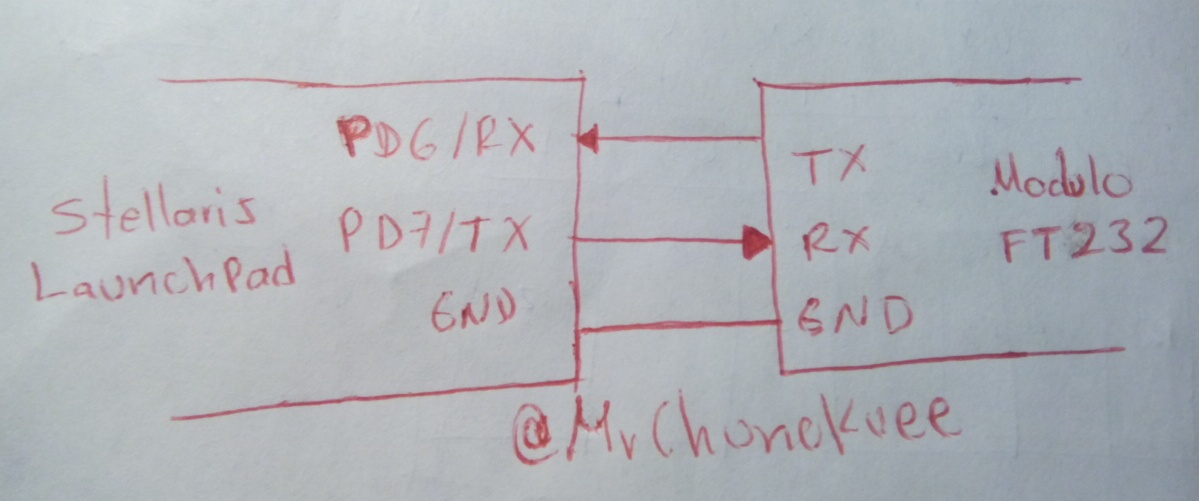 Stellaris
LaunchPad
PD6/RX
PD7/TX
GND
TX
RX
GND
Modulo
FT232
@MrChunckuee